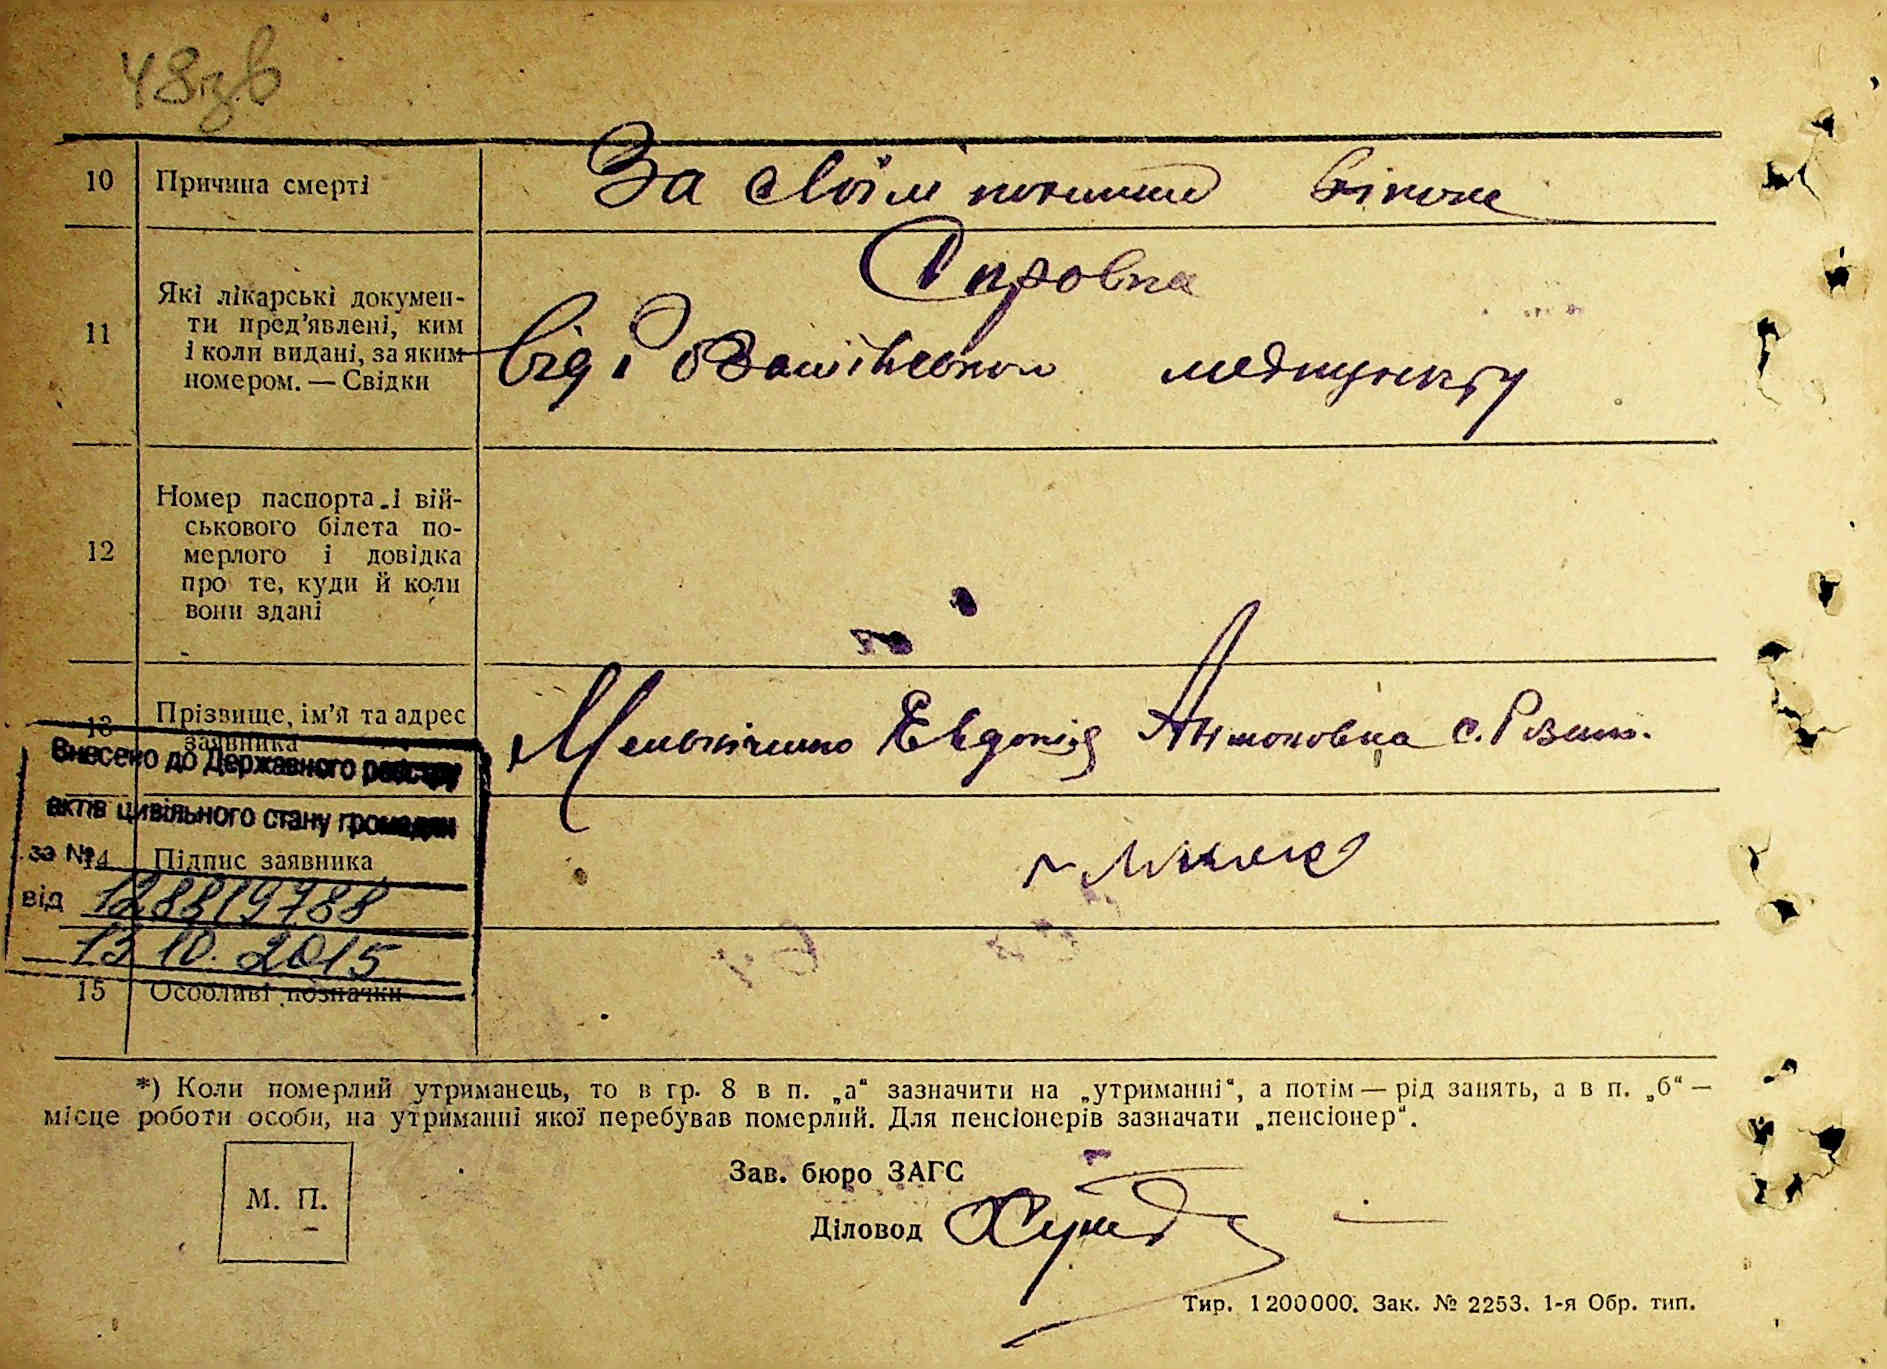 48зв
10 Причина смерті За своїм віком
11 Які лікарські докумен-
ти пред'явлені, ким
і коли видані, за яким
номером. — Свідки
Справка
від медпункту
12 Номер паспорта і вій-
ськового білета по-
мерлого і довідка
про те, куди й коли
вони здані
13 Прізвище, ім'я та адрес
заявника
Евдокія Антоновна с.
Внесено до Державного реєстру
актів цивільного стану громадян
за №
14 Підпис заявника
від 128819788
13 10. 2015
15 Особливі позначки
*) Коли померлий утриманець, то в гр. 8 в п. „а“ зазначити на „утриманні“, а потім — рід занять, а в п. „б“ —
місце роботи особи, на утриманні якої перебував померлий. Для пенсіонерів зазначати „пенсіонер“.
М. П.
Зав. бюро ЗАГС
Діловод
Тир. 1200000. Зак. № 2253. 1-я Обр. тип.